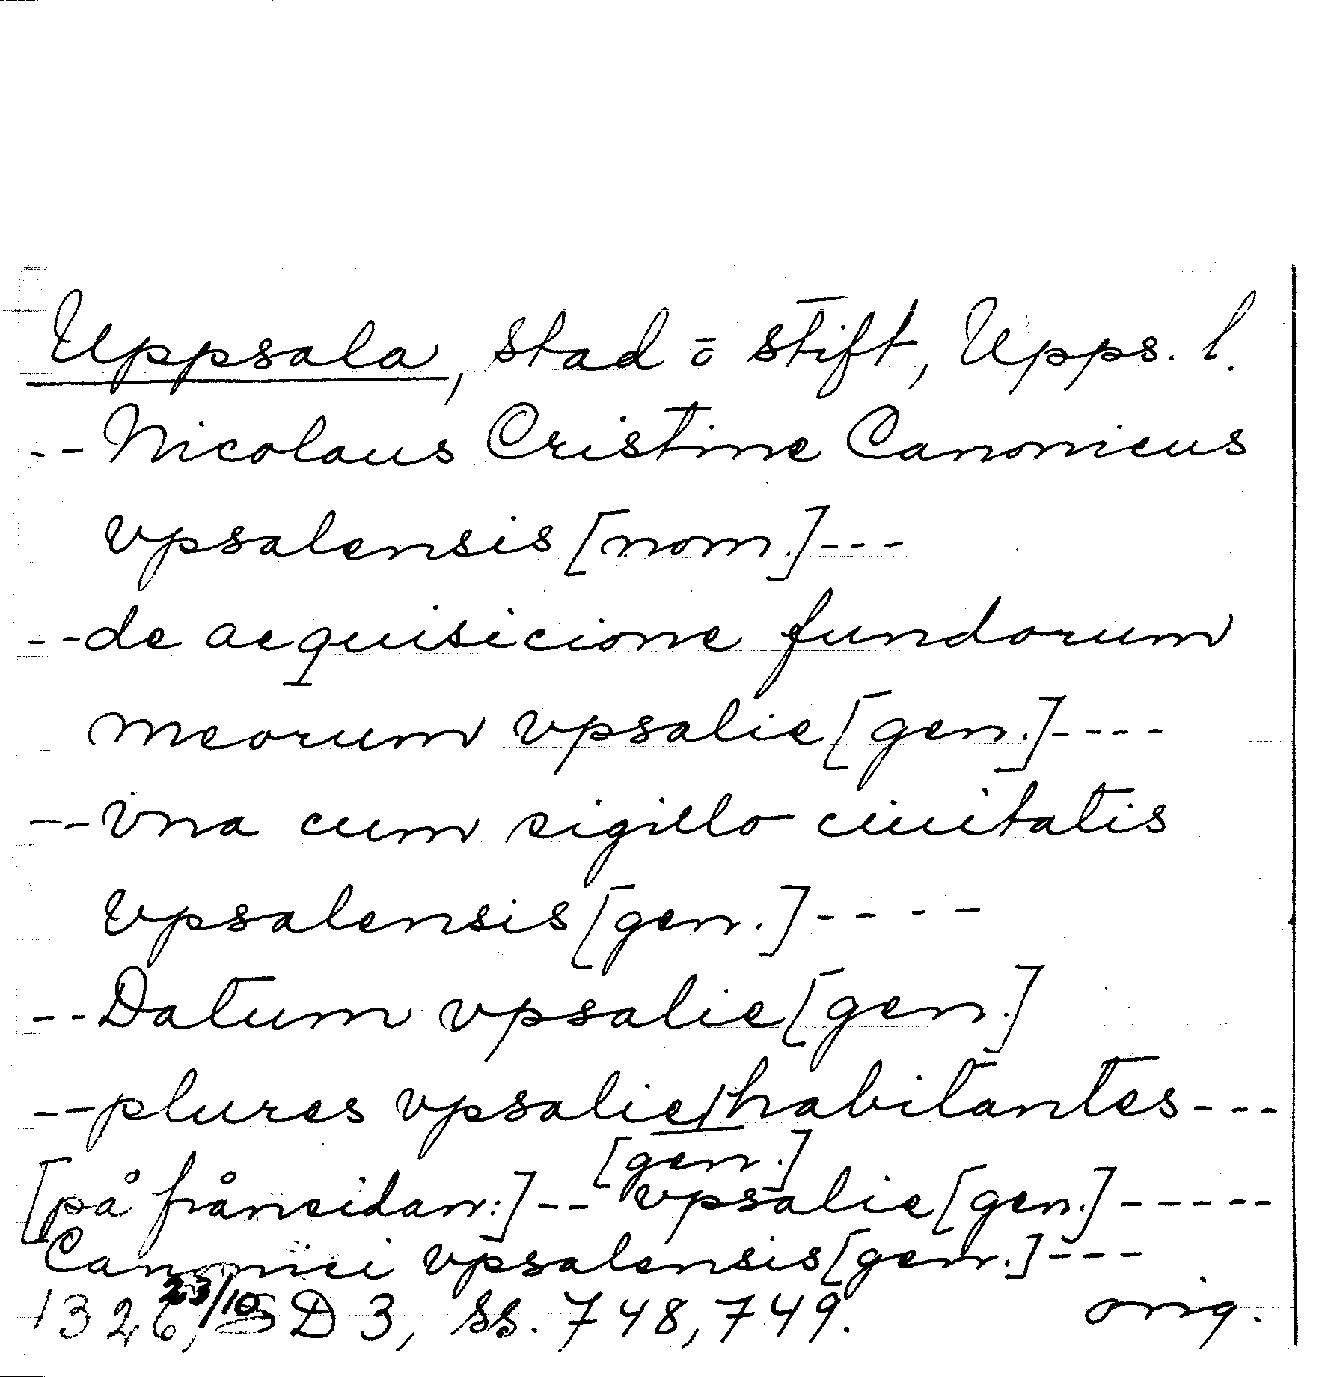 Uppsala, stad o stift, Upps. l.
-- Nicolaus Cristine Canonicus
vpsalensis [nom.] ---
-- de acquisicione fundorum
meorum vpsalie [gen.] ----
-- vna cum sigillo ciuitatis
vpsalensis [gen.] ----
-- Datum vpsalie [gen.]
-- plures vpsalie/habitantes ---
[gen.]
[på frånsidan:] -- vpsalie [gen.] -----
Canonici vpsalensis [gen.] ---
1326 23/10, SD 3, ss. 748, 749. orig.